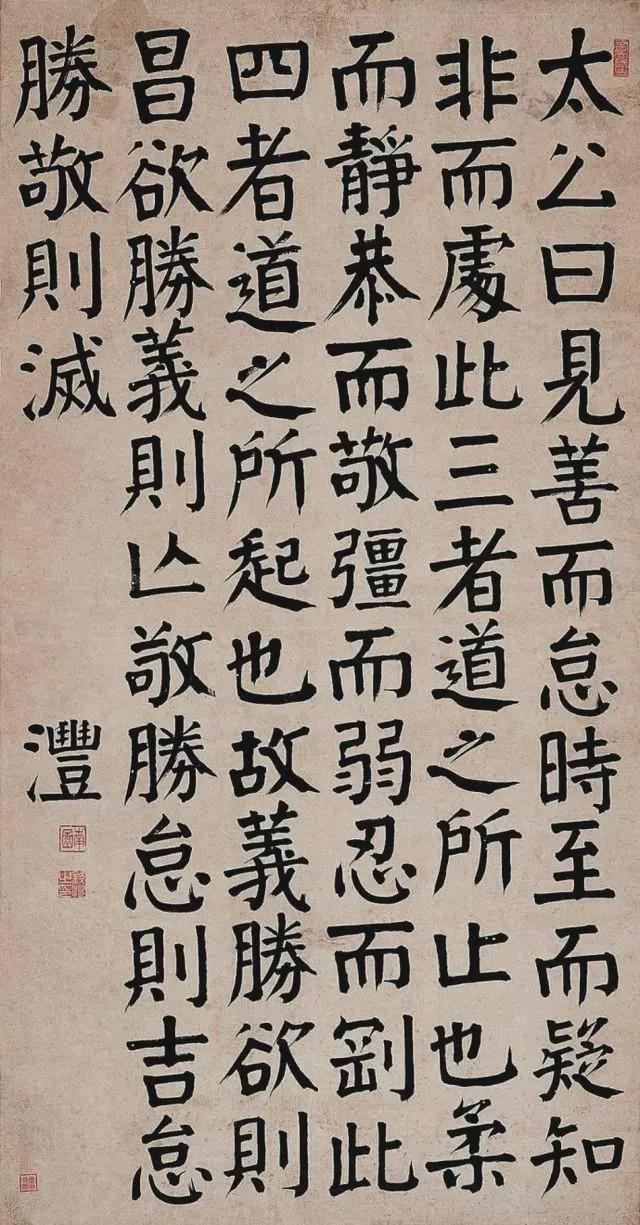 太公曰見善而怠時至而疑知
非而處此三者道之所止也柔
而靜恭而敬彊而弱忍而剛此
四者道之所起也故義勝欲則
昌欲勝義則亾敬勝怠則吉怠
勝敬則滅
灃